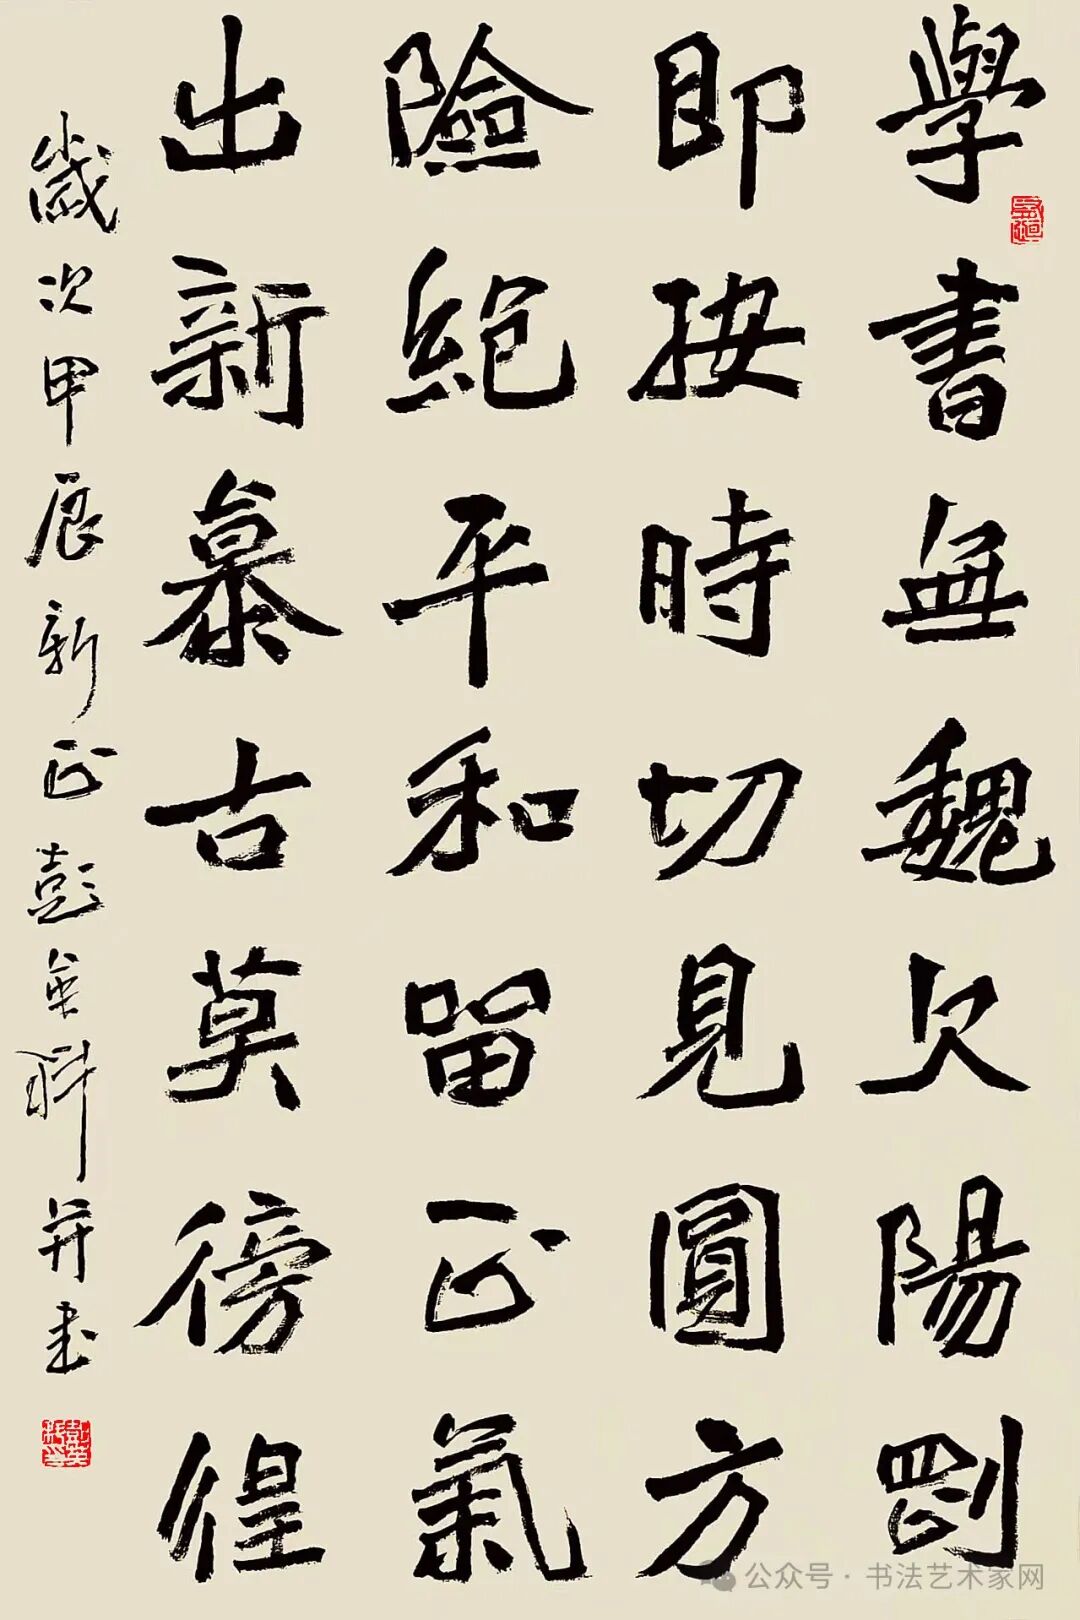 學書無魏欠陽剛
即按時切見圓方
險絕平和留正氣
出新慕古莫徬徨
歲次甲辰新正彭英科并書
公众号 · 书法艺术家网